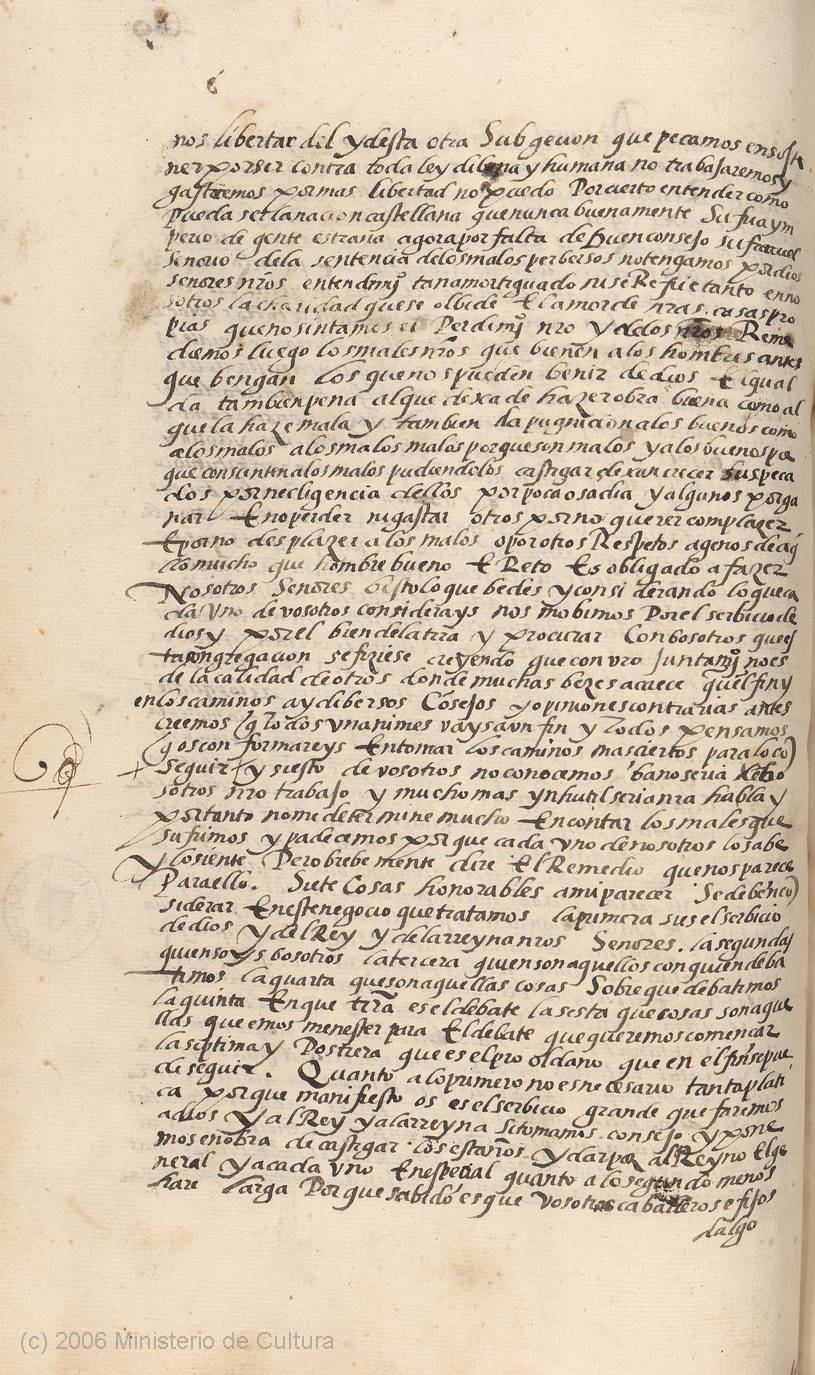 nos libertar del y desta otra Subgecion que pecamos en soste
ner por ser contra toda ley dibina y humana no trabajaremos y
gastaremos por mas libertad no puedo Por cierto entender como
pueda ser la nacion castellana que nunca buenamente Sufria ym
perio de gente estraña agora por falta de Buen consejo sufra cruel
Senorio dela sentencia delos malos perbersos no tengamos por dios
senores nros entendimyº tan amortiguado ni se Resfrie tanto en no
sotros la charidad que se olbide El amor de nras casas pro
pias que no sintamos el Perdimyº nro y delos nros Reme
diemos luego los males nros que bienen a los hombres antes
que bengan los que nos pueden benir de dios E igual
da tambien pena al que dexa de hazer obra buena como al
que la haze mala y tambien da pugnicion a los buenos como
a los malos a los malos malos porque son malos y a los buenos por
que consienten a los malos pudiendolos castigar dexan crecer sus peca
dos por necligencia dellos por poca osadia y algunos por ga
nar E no perder ni gastar otros por no querer complazer
E por no desplazer a los malos o por otros Respetos agenos de aq
llo mucho que hombre bueno E Reto Es obligado a fazer
Nosotros Senores bisto lo que bedes y considerando lo que ca
da vno de vosotros considerays nos mobimos Por el serbicio de
dios y por el bien dela trra y procurar Con bosotros que es
ta congregacion se fiziese creyendo que con vro Juntamyº no es
de la calidad de otros donde muchas bezes acaece quel fin y
en los caminos ay dibersos Cosejos y opiniones contrarias antes
creemos q todos vnanimes vays a vn fin y todos pensamos
q os conformareys En tomar los caminos mas ciertos para lo co
Seguir y si esto de vosotros no conocemos bano seria Setro
sotros nro trabajo y mucho mas ynhutil seria mi habla y
por tanto no me determine mucho En contar los males que
sufrimos y padecemos por que cada vno de nosotros lo sabe
y lo siente Pero brebemente dire El Remedio que nos parece
Para ello. Siete Cosas honorables a mi parecer Se deben co
siderar En este negocio que tratamos la primera si es el serbicio
de dios y del Rey y de la rreyna nros Senores. la segunda
quien soys bosotros la tercera quien son aquellos con quien deba
timos la quarta que son aquellas cosas Sobre que debatimos
la quinta En que trra es el debate la sesta que cosas son aque
llas que emos menester para El debate que queremos comencar
la septima y Postrera que es el pro o el daño que en el fin se pue
de seguir. Quanto a lo primero no es necesario tanta plati
ca por que manifiesto os es el serbicio grande que faremos
a dios y al Rey y a la rreyna si tomamos consejo y pone
mos en obra de castigar los estraños y dar paz al Reyno El ge
neral y a cada vno En espetial quanto a lo segundo menos
hare larga Por que sabido es que vosotros caballeros e fijos
dalgo
(c) 2006 Ministerio de Cultura